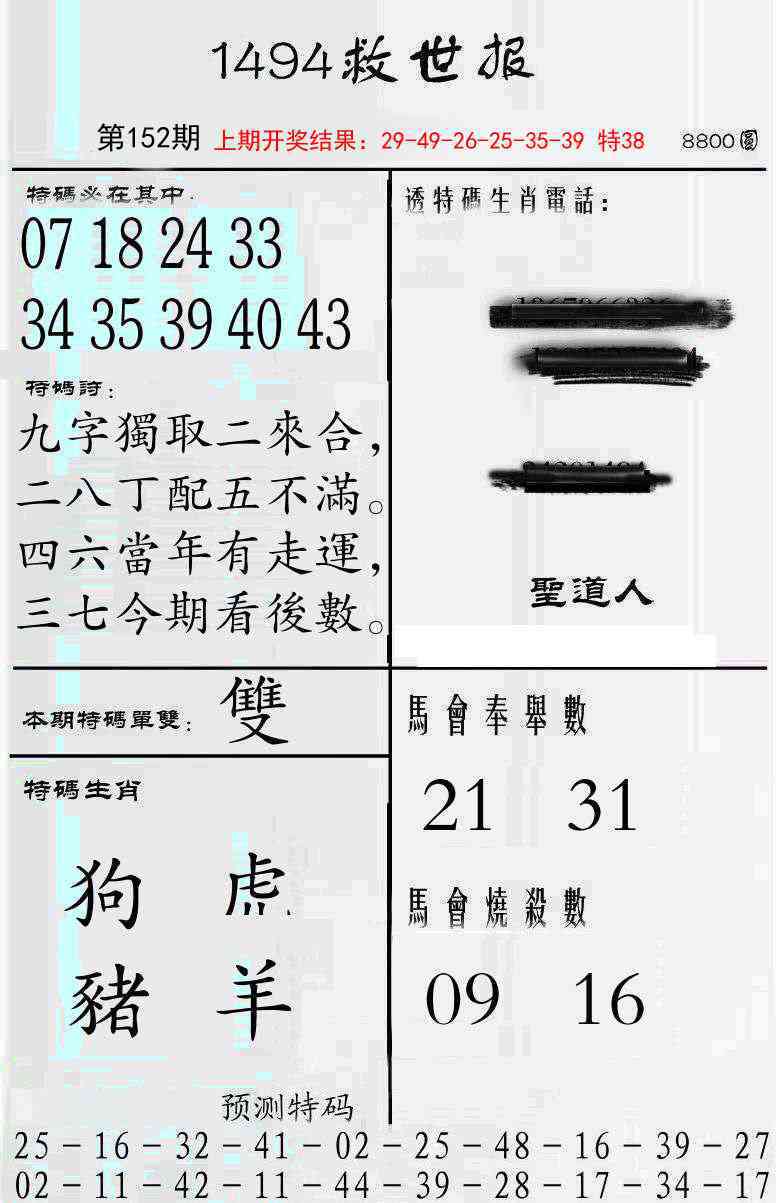 1494救世报
第152期 上期开奖结果：29-49-26-25-35-39 特38 8800圓
特碼必在其中：
07 18 24 33
34 35 39 40 43
特碼詩：
九字獨取二來合，
二八丁配五不滿。
四六當年有走運，
三七今期看後數。
透特碼生肖電話：
聖道人
本期特碼單雙：雙
特碼生肖
狗 虎
豬 羊
馬會奉舉數
21 31
馬會燒殺數
09 16
预测特码
25－16－32－41－02－25－48－16－39－27
02－11－42－11－44－39－28－17－34－17